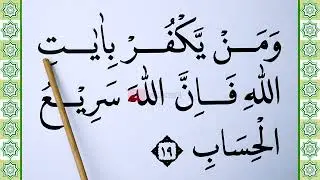 وَمَنْ يَّكْفُرْ بِاٰيٰتِ
اللّٰهِ فَاِنَّ اللّٰهَ سَرِيْعُ
الْحِسَابِ ﴿١٩﴾